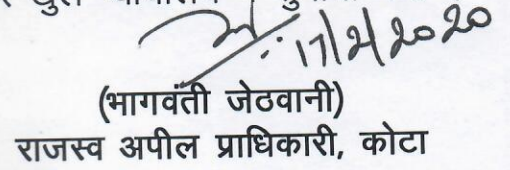 17/2/2020
(भागवंती जेठवानी)
राजस्व अपील प्राधिकारी, कोटा